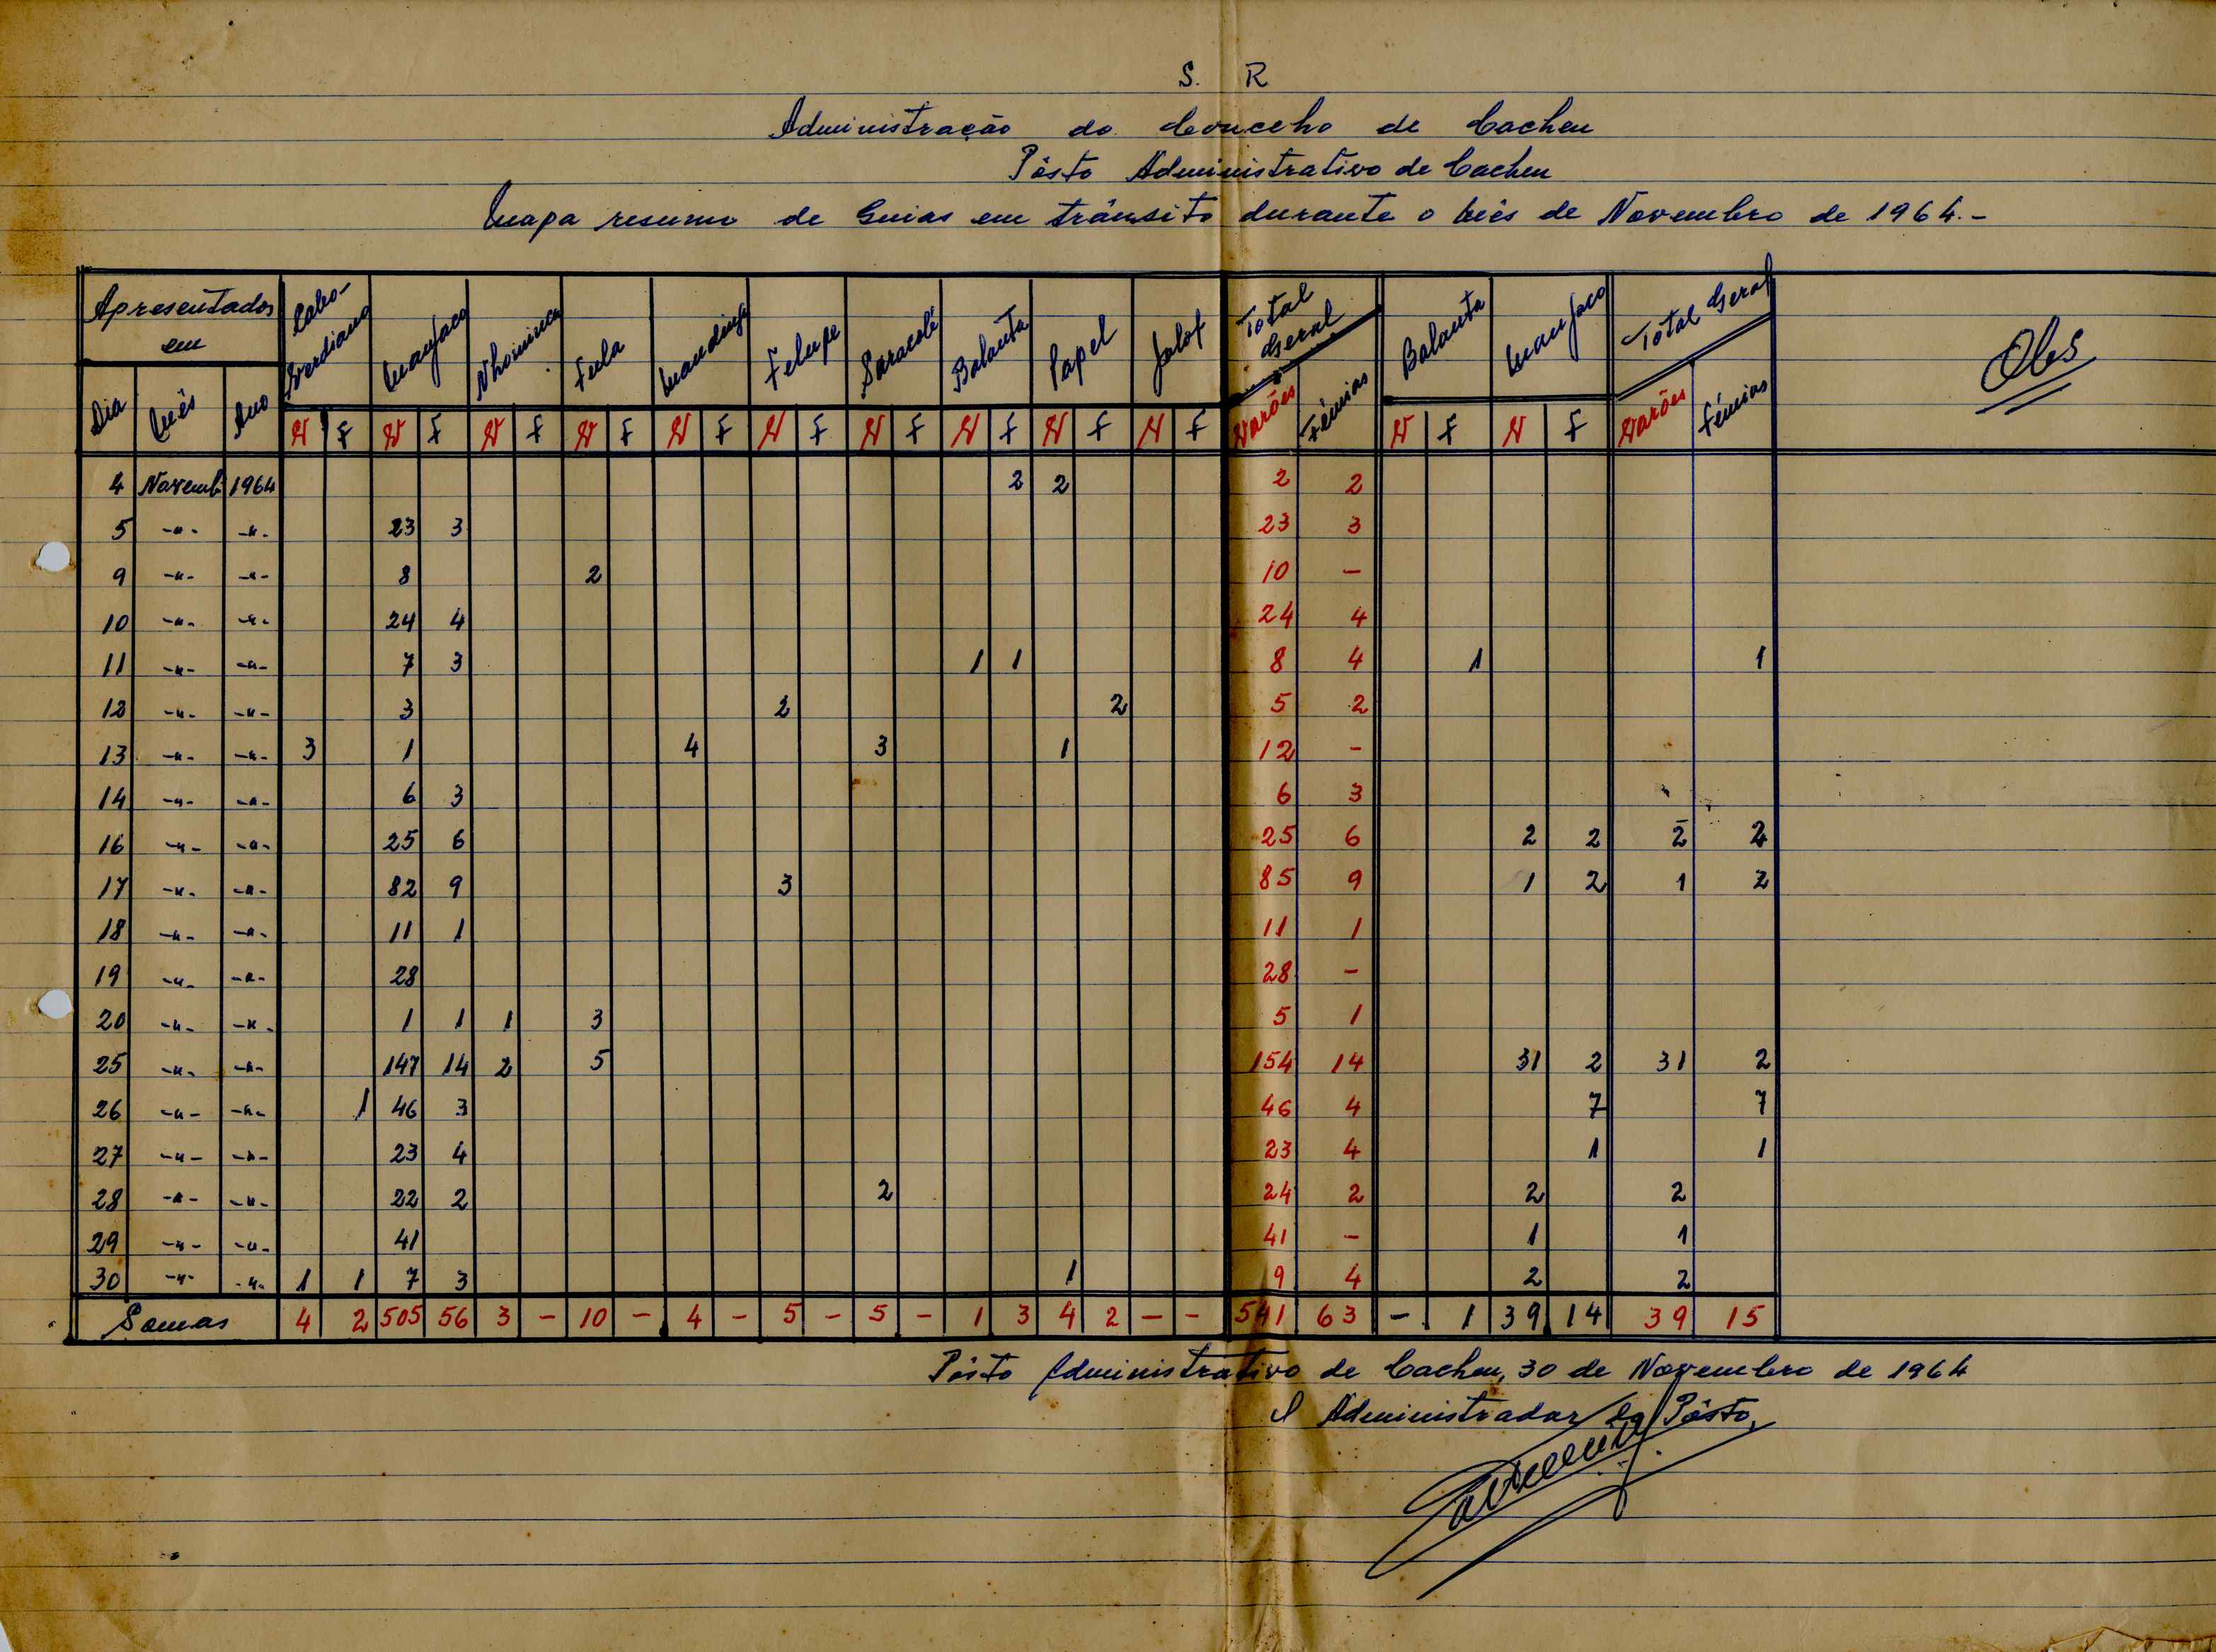 S. R
Administração do Conceho de Cacheu
Pôsto Administrativo de Cacheu
Mapa resumo de Guias em trânsito durante o Mês de Novembro de 1964.-
Apresentados em Cabo-Verdiano Manjaco Nhominca Fula Mandinga Felupe Saracolé Balanta Papel Jalof Total Geral Balanta Manjaco Total Geral Obs
Dia Mês Ano V F V F V F V F V F V F V F V F V F V F Varões Fêmias V F V F Varões Fémias
4 Novemb 1964 2 2 2 2
5 -"- -"- 23 3 23 3
9 -"- -"- 8 2 10 -
10 -"- -"- 24 4 24 4
11 -"- -"- 7 3 1 1 8 4 1 1
12 -"- -"- 3 2 2 5 2
13 -"- -"- 3 1 4 3 1 12 -
14 -"- -"- 6 3 6 3
16 -"- -"- 25 6 25 6 2 2 2 2
17 -"- -"- 82 9 3 85 9 1 2 1 2
18 -"- -"- 11 1 11 1
19 -"- -"- 28 28 -
20 -"- -"- 1 1 1 3 5 1
25 -"- -"- 147 14 2 5 154 14 31 2 31 2
26 -"- -"- 1 46 3 46 4 7 7
27 -"- -"- 23 4 23 4 1 1
28 -"- -"- 22 2 2 24 2 2 2
29 -"- -"- 41 41 - 1 1
30 -"- -"- 1 1 7 3 1 9 4 2 2
Somas 4 2 505 56 3 - 10 - 4 - 5 - 5 - 1 3 4 2 - - 541 63 - 1 39 14 39 15
Pôsto Administrativo de Cacheu, 30 de Novembro de 1964
O Administrador do Pôsto,